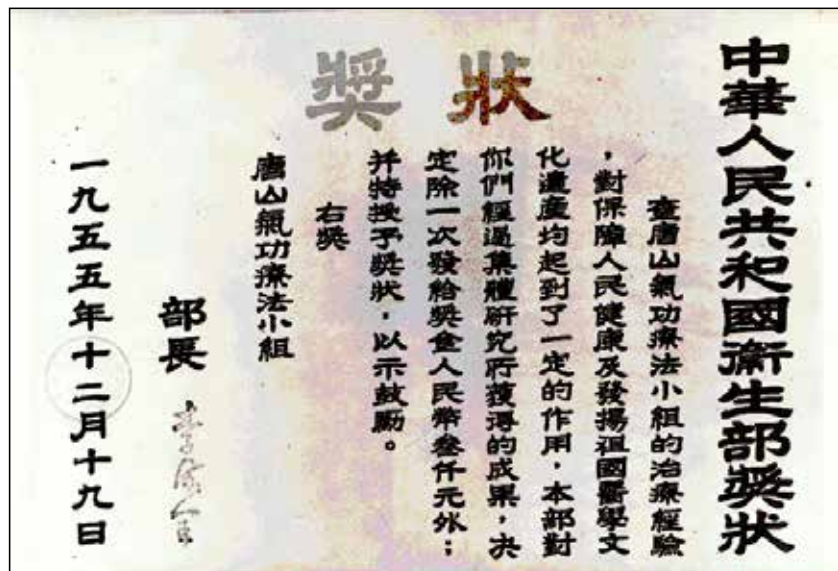 中華人民共和國衞生部獎狀
獎狀
查唐山氣功療法小組的治療經驗
，對保障人民健康及發揚祖國醫學文
化遺產均起到了一定的作用，本部對
你們經過集體研究所獲得的成果，決
定除一次發給獎金人民幣叁仟元外；
并特授予獎狀，以示鼓勵。
右獎
唐山氣功療法小組
部長 李德全
一九五五年十二月十九日